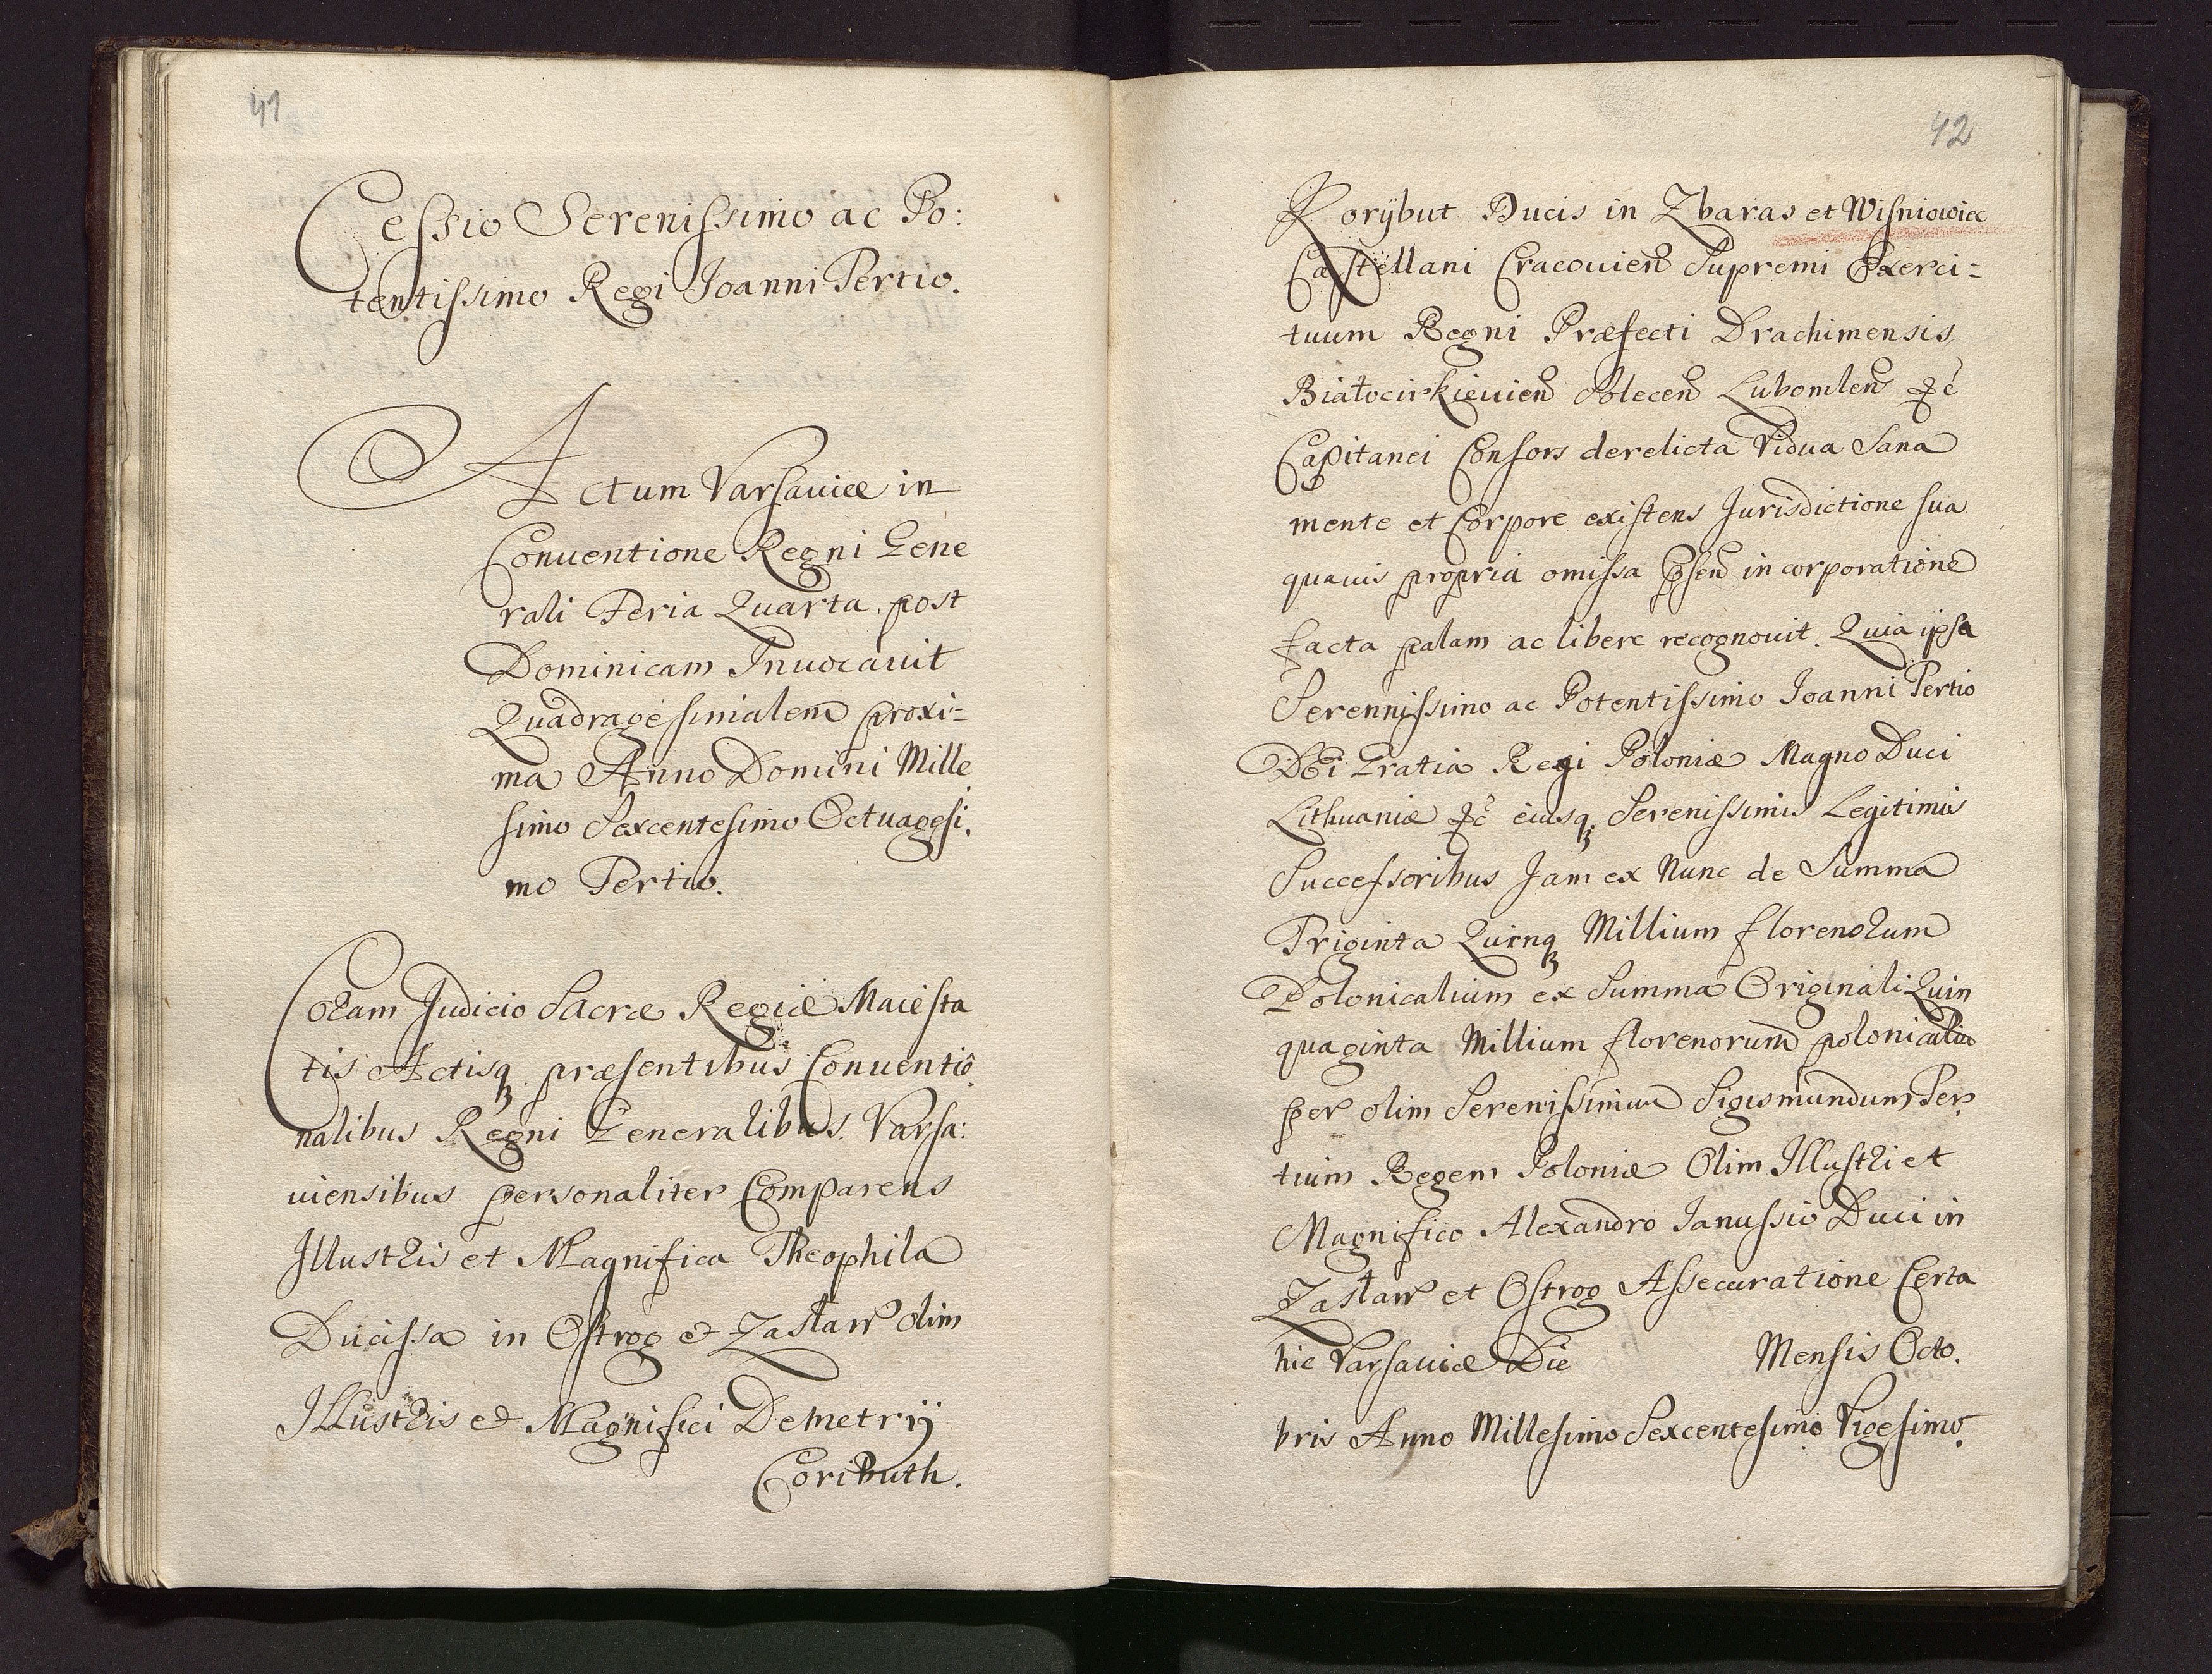 41
Cessio Serenissimo ac Po:
tentissimo Regi Joanni Tertio.
Actum Varsaviæ in
Conuentione Regni Gene
rali Feria Quarta post
Dominicam Inuocauit
Quadragesimalem proxi=
ma Anno Domini Mille
simo Sexcentesimo Octuagesi.
mo Tertio.
Coram Judicio Sacræ Regiæ Maiesta
tis Actisq; præsentibus Conuentio
nalibus Regni Generalibus Varsa:
uiensibus personaliter Comparens
Illustris et Magnifica Theophila
Ducissa in Ostrog et Zasław olim
Illustris et Magnifici Demetrij
Coributh.
42
Korÿbut Ducis in Zbaras et Wisniowiec
Castellani Cracouien Supremi Exerci=
tuum Regni Præfecti Drachimensis
Białocirkieuien Solecen Lubomlen &c
Capitanei Consors derelicta Vidua Sana
mente et Corpore existens Jurisdictione sua
quauis propria omissa Psen incorporatione
facta palam ac libere recognouit. Quia ipsa
Serennissimo ac Potentissimo Joanni Tertio
DEi Gratia Regi Poloniæ Magno Duci
Lithuaniæ &c eiusq; Serenissimis Legitimis
Successoribus Jam ex Nunc de Summa
Triginta Quinq; Millium florenorum
Polonicalium ex Summa Originali Quin
quaginta Millium florenorum polonicaliu
per olim Serenissimum Sigismundum Ter
tium Regem Poloniæ Olim Illustri et
Magnifico Alexandro Janussio Duci in
Zasław et Ostrog Assecuratione Certa
hic Varsauiæ Die Mensis Octo.
bris Anno Millesimo Sexcentesimo Vigesimo.